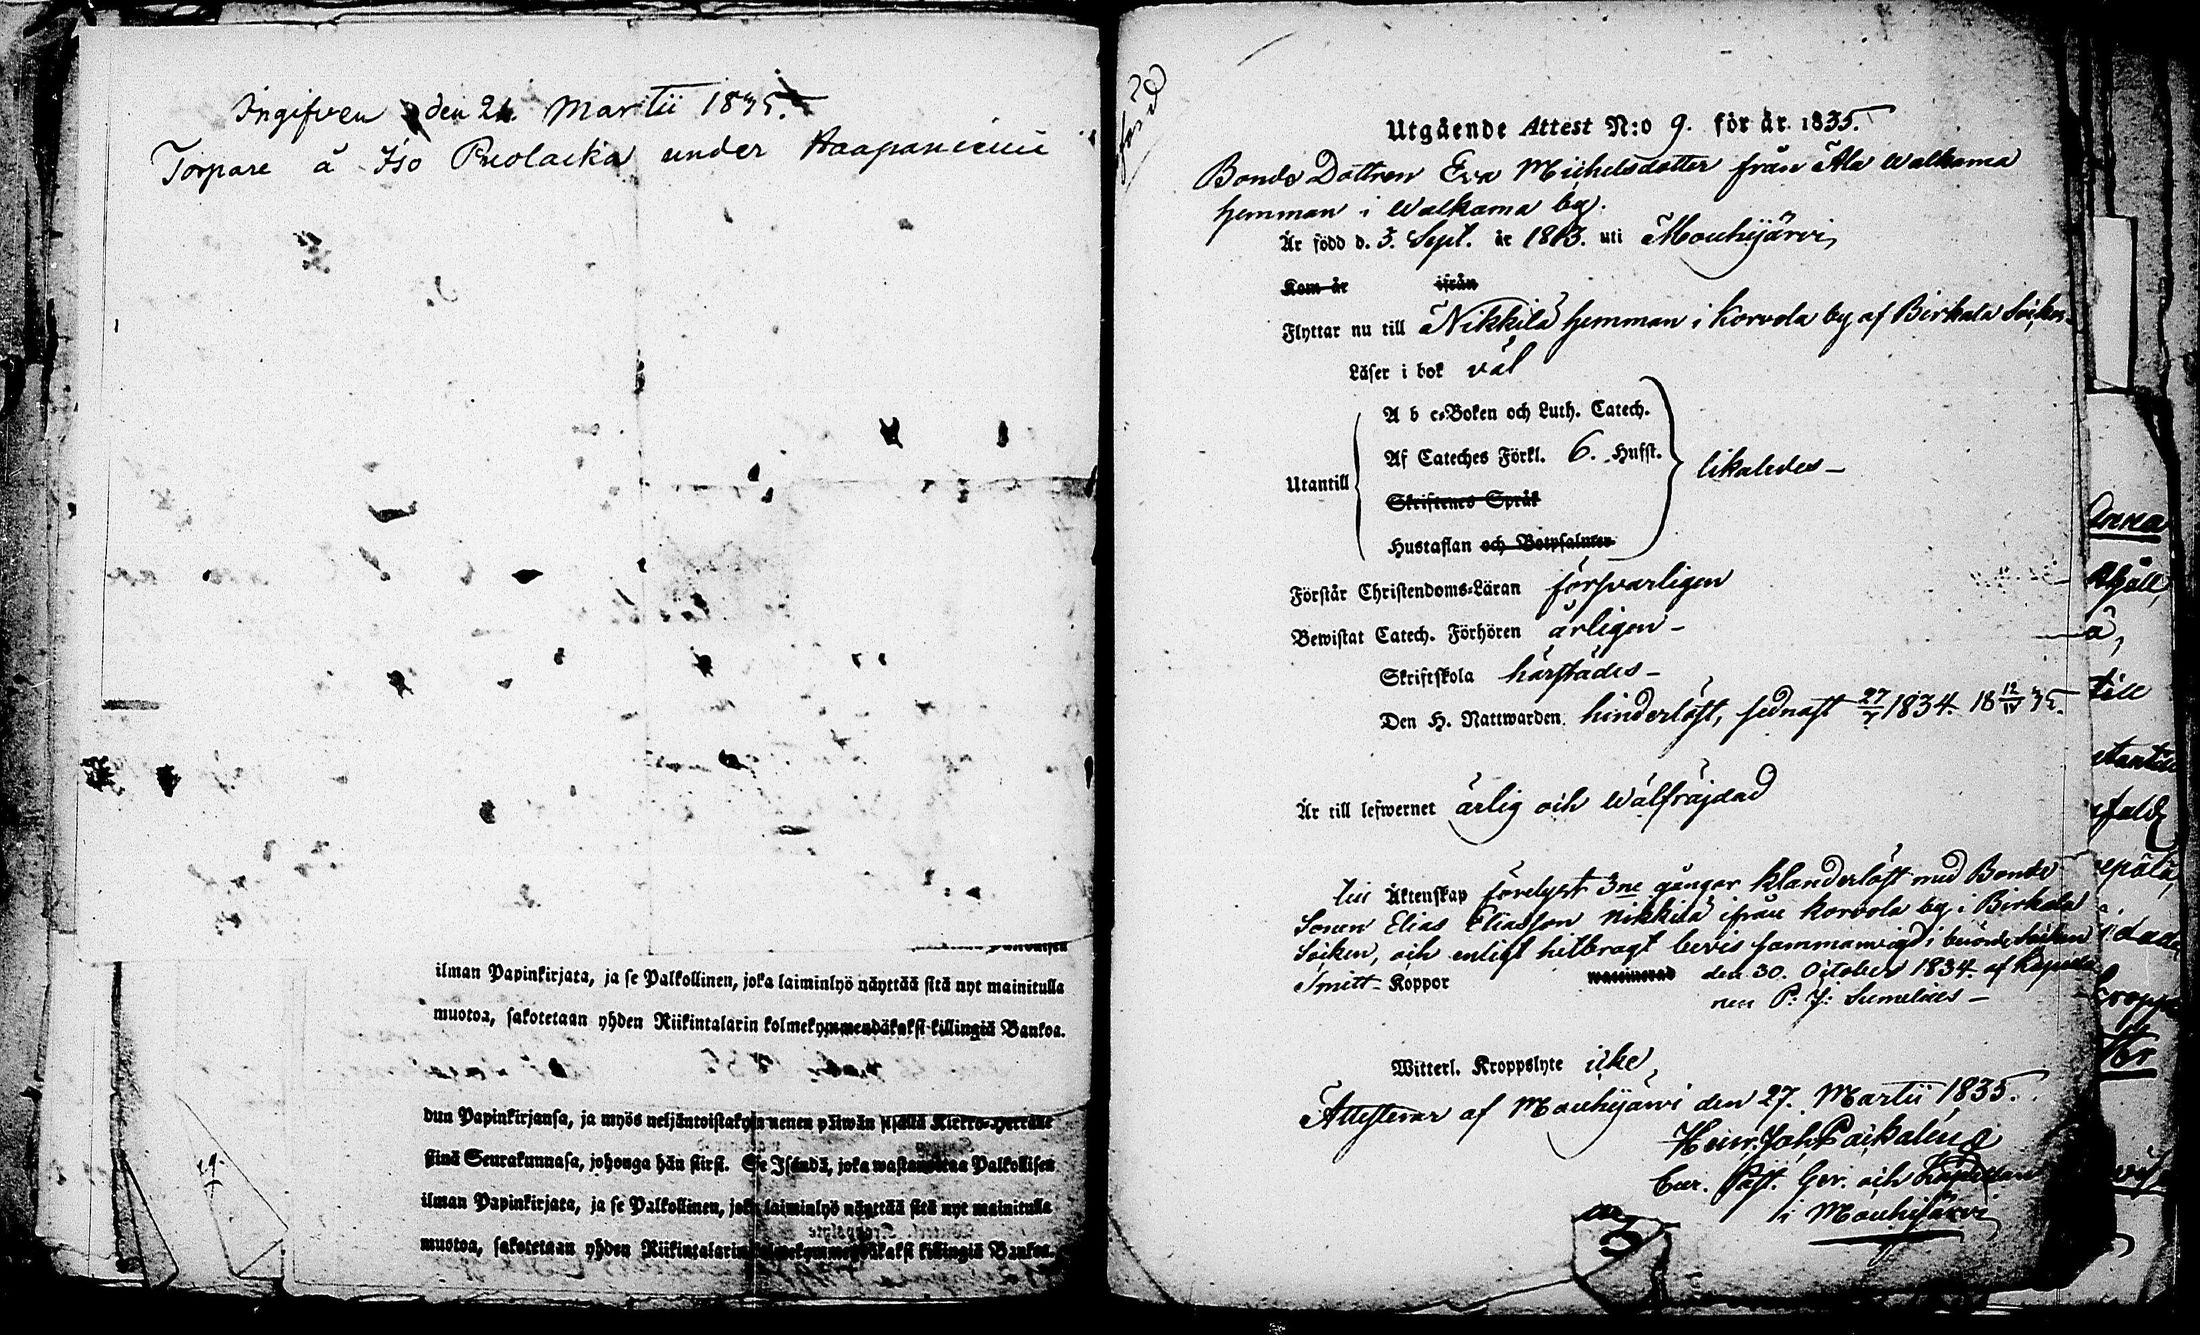 Ingifven den 21. Martii 1835.
Torpare å Iso Puolacka under Haapaniemi
ilman Papinkirjata, ja se Palkollinen, joka laiminlyö näyttää sitä nyt mainitulla
muotoa, sakotetaan yhden Riikintalarin kolmekymmendäkaksi killingiä Bankoa.
dun Papinkirjansa, ja myös neljäntoistakym nenen päiwän sisällä Kirkko-Herrane
siinä Seurakunnasa, johonga hän siirsi. Se Isändä, joka wastanottaa Palkollisen
ilman Papinkirjata, ja se Palkollinen, joka laiminlyö näyttää sitä nyt mainitulla
muotoa, sakotetaan yhden Riikintalarin kolmekymmendäkaksi killingiä Bankoa.
Utgående Attest N:o 9. för år 1835.
Bonde Dottren Eva Michelsdotter från Ala Walkama
hemman i Walkama by.
Är född d. 3. Sept. år 1813. uti Mouhijärvi,
Kom år ifrån
Flyttar nu till Nikkilä hemman i Korvola by af Birkala Soken
Läser i bok väl
A b c-Boken och Luth. Catech.
Af Cateches Förkl. 6. Hufst.
Utantill likaledes
Skriftenes Språk
Hustaflan och Botpsalmer
Förstår Christendoms-Läran försvarligen
Bewistat Catech. Förhören årligen
Skriftskola härstädes
Den H. Nattwarden hinderlöst, sednast 27/7 1834. 18 12/IV 35.
Är till lefwernet ärlig och wälfräjdad
till Äktenskap förelyst 3ne gångor klanderlöst med Bonde
Sonen Elias Eliasson Nikkilä ifrån Korvola by i Birkala
Soken, och enligt hitbragt bevis sammanvigd i berörde Soken
Smitt-Koppor waccinerad den 30. October 1834 af Capella
nen P. J: Sumelius
Witterl. Kroppslyte icke,
Attesterar af Mouhijärvi den 27. Martii 1835.
Henr. Joh. Paikalin
Cur. Past. Ger. och Capellan
i Mouhijärvi
3
Anna
till